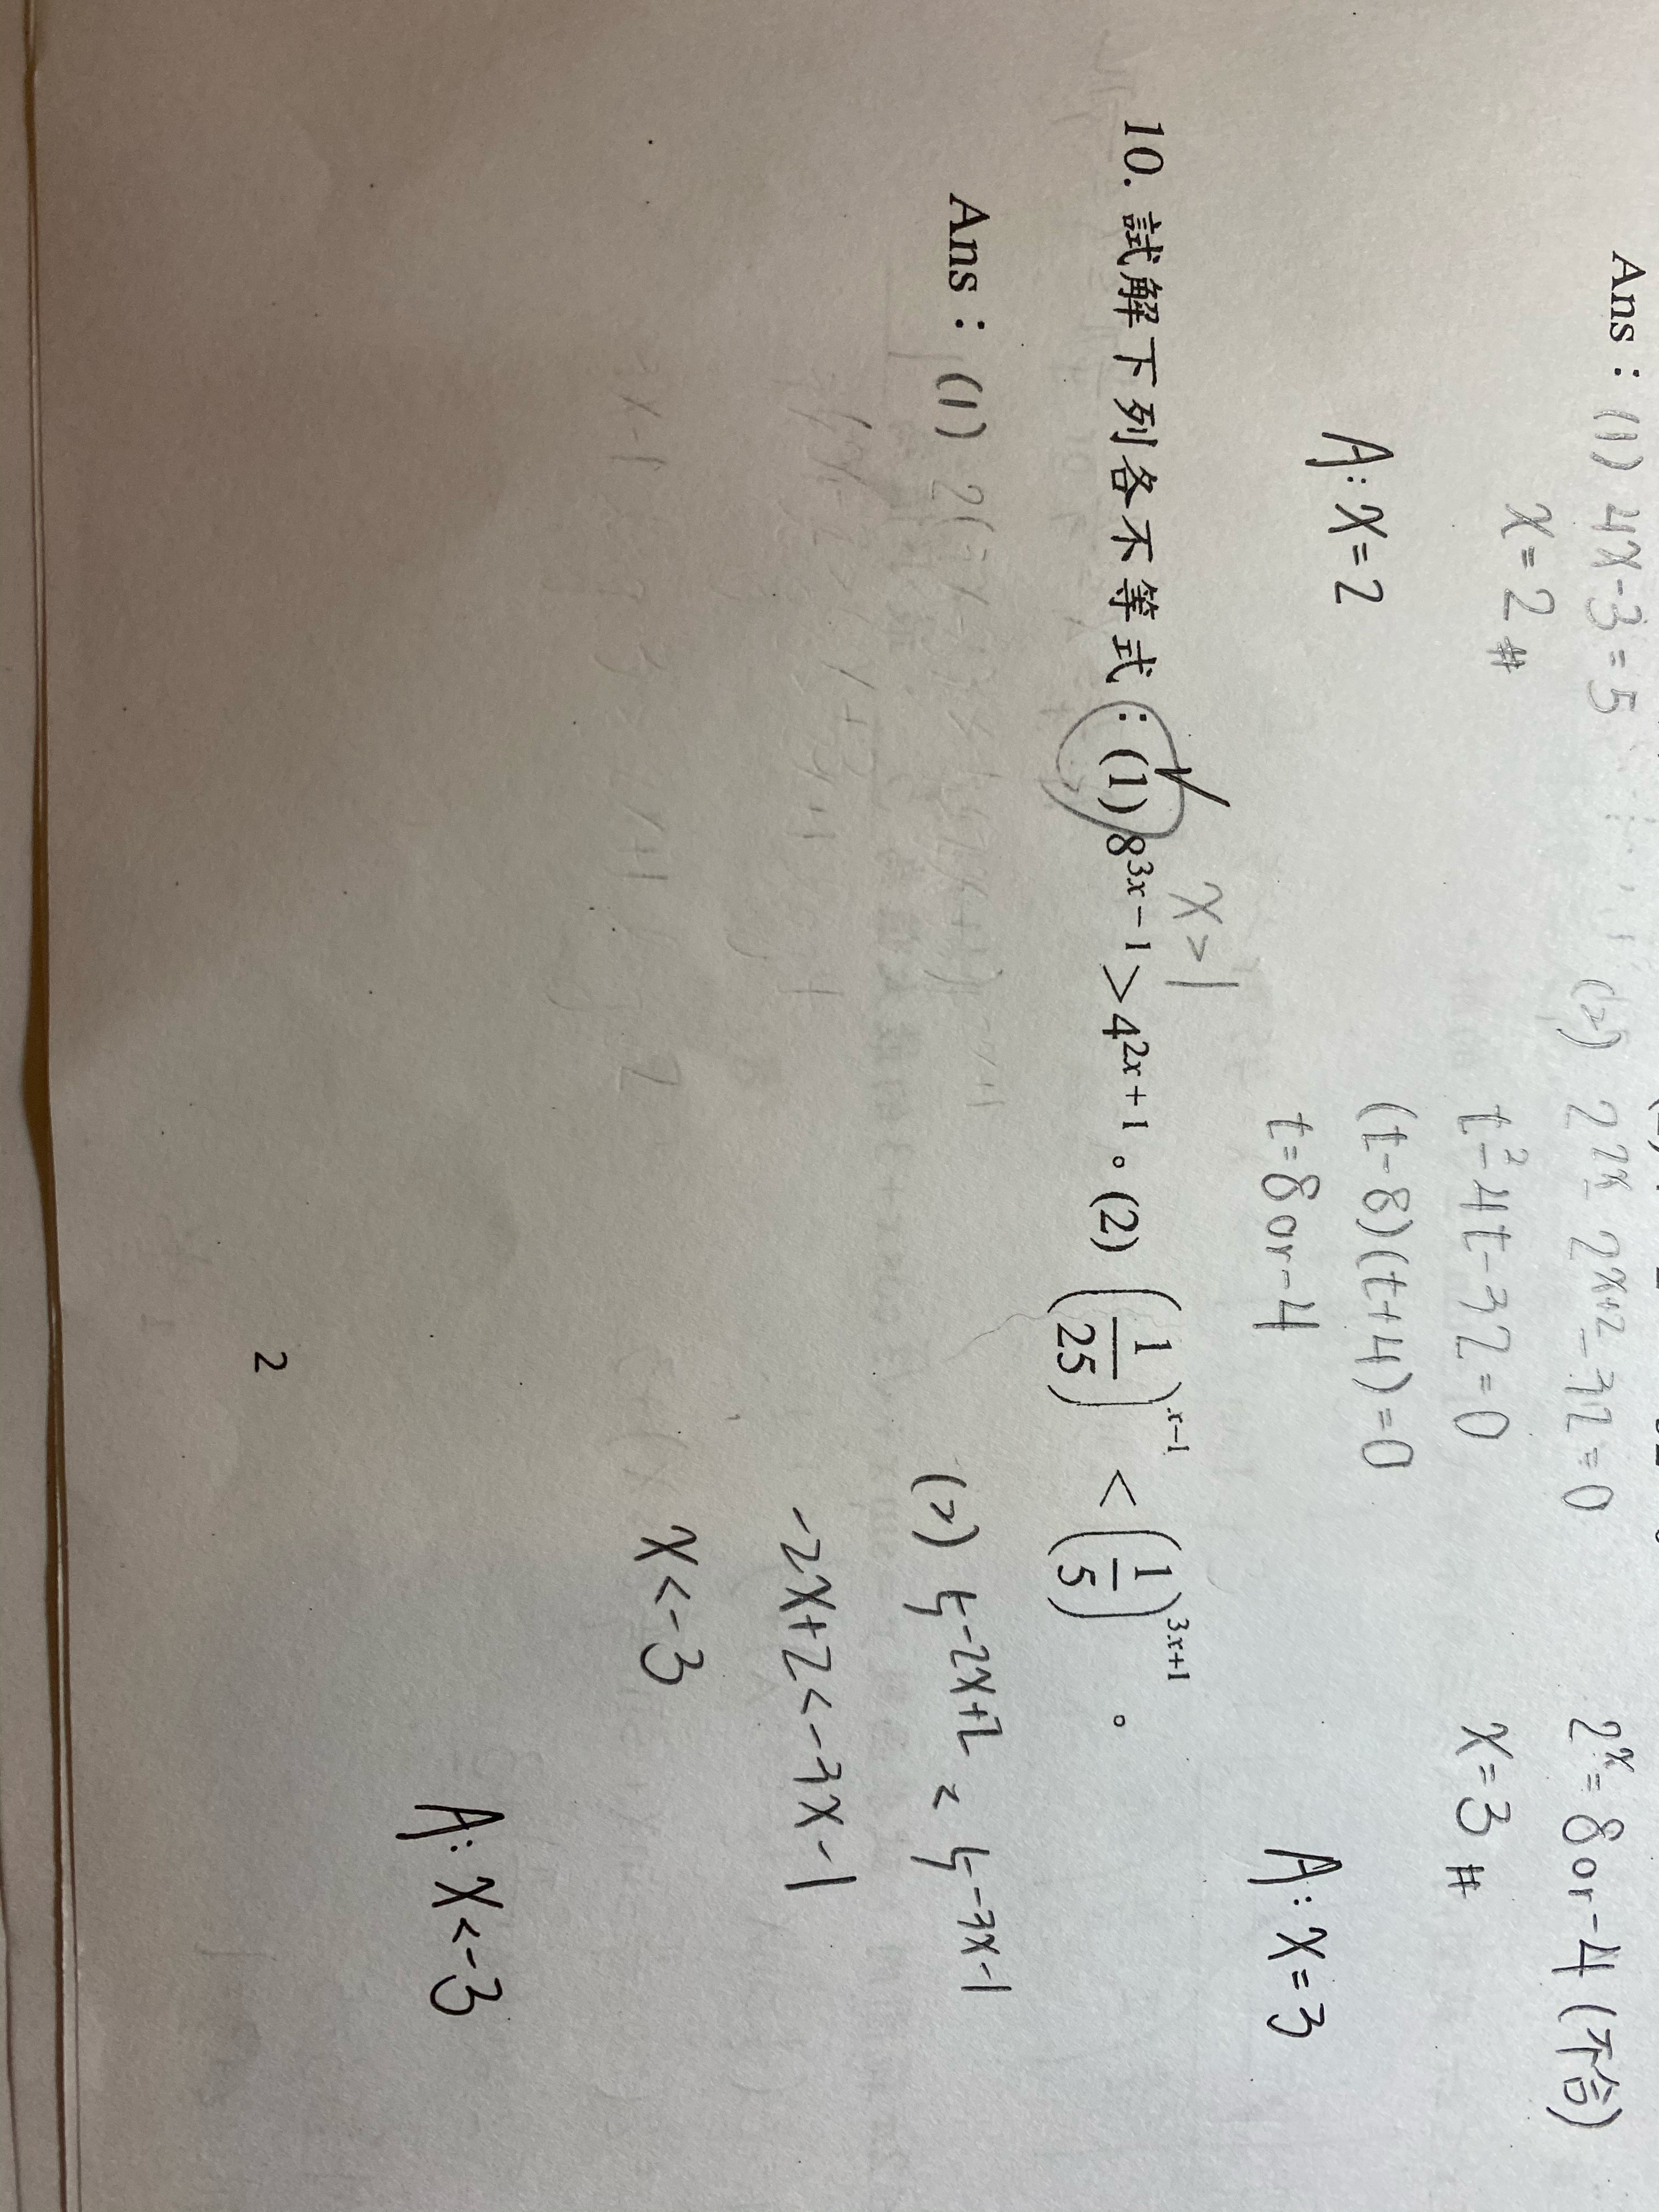 Ans：(1) 4x-3=5
(2) 2^{2x} 2^{x+2}-32=0
2^x=8 or -4 (不合)
x=2 #
t^2-4t-32=0
x=3 #
(t-8)(t+4)=0
A: x=2
t=8 or -4
A: x=3
x>1
10. 試解下列各不等式：(1) 8^{3x-1}>4^{2x+1}。(2) (1/25)^{x-1} < (1/5)^{3x+1}。
Ans：(1)
(2) 5^{-2x+2} = 5^{-3x-1}
-2x+2<-3x-1
x<-3
A: x<-3
2